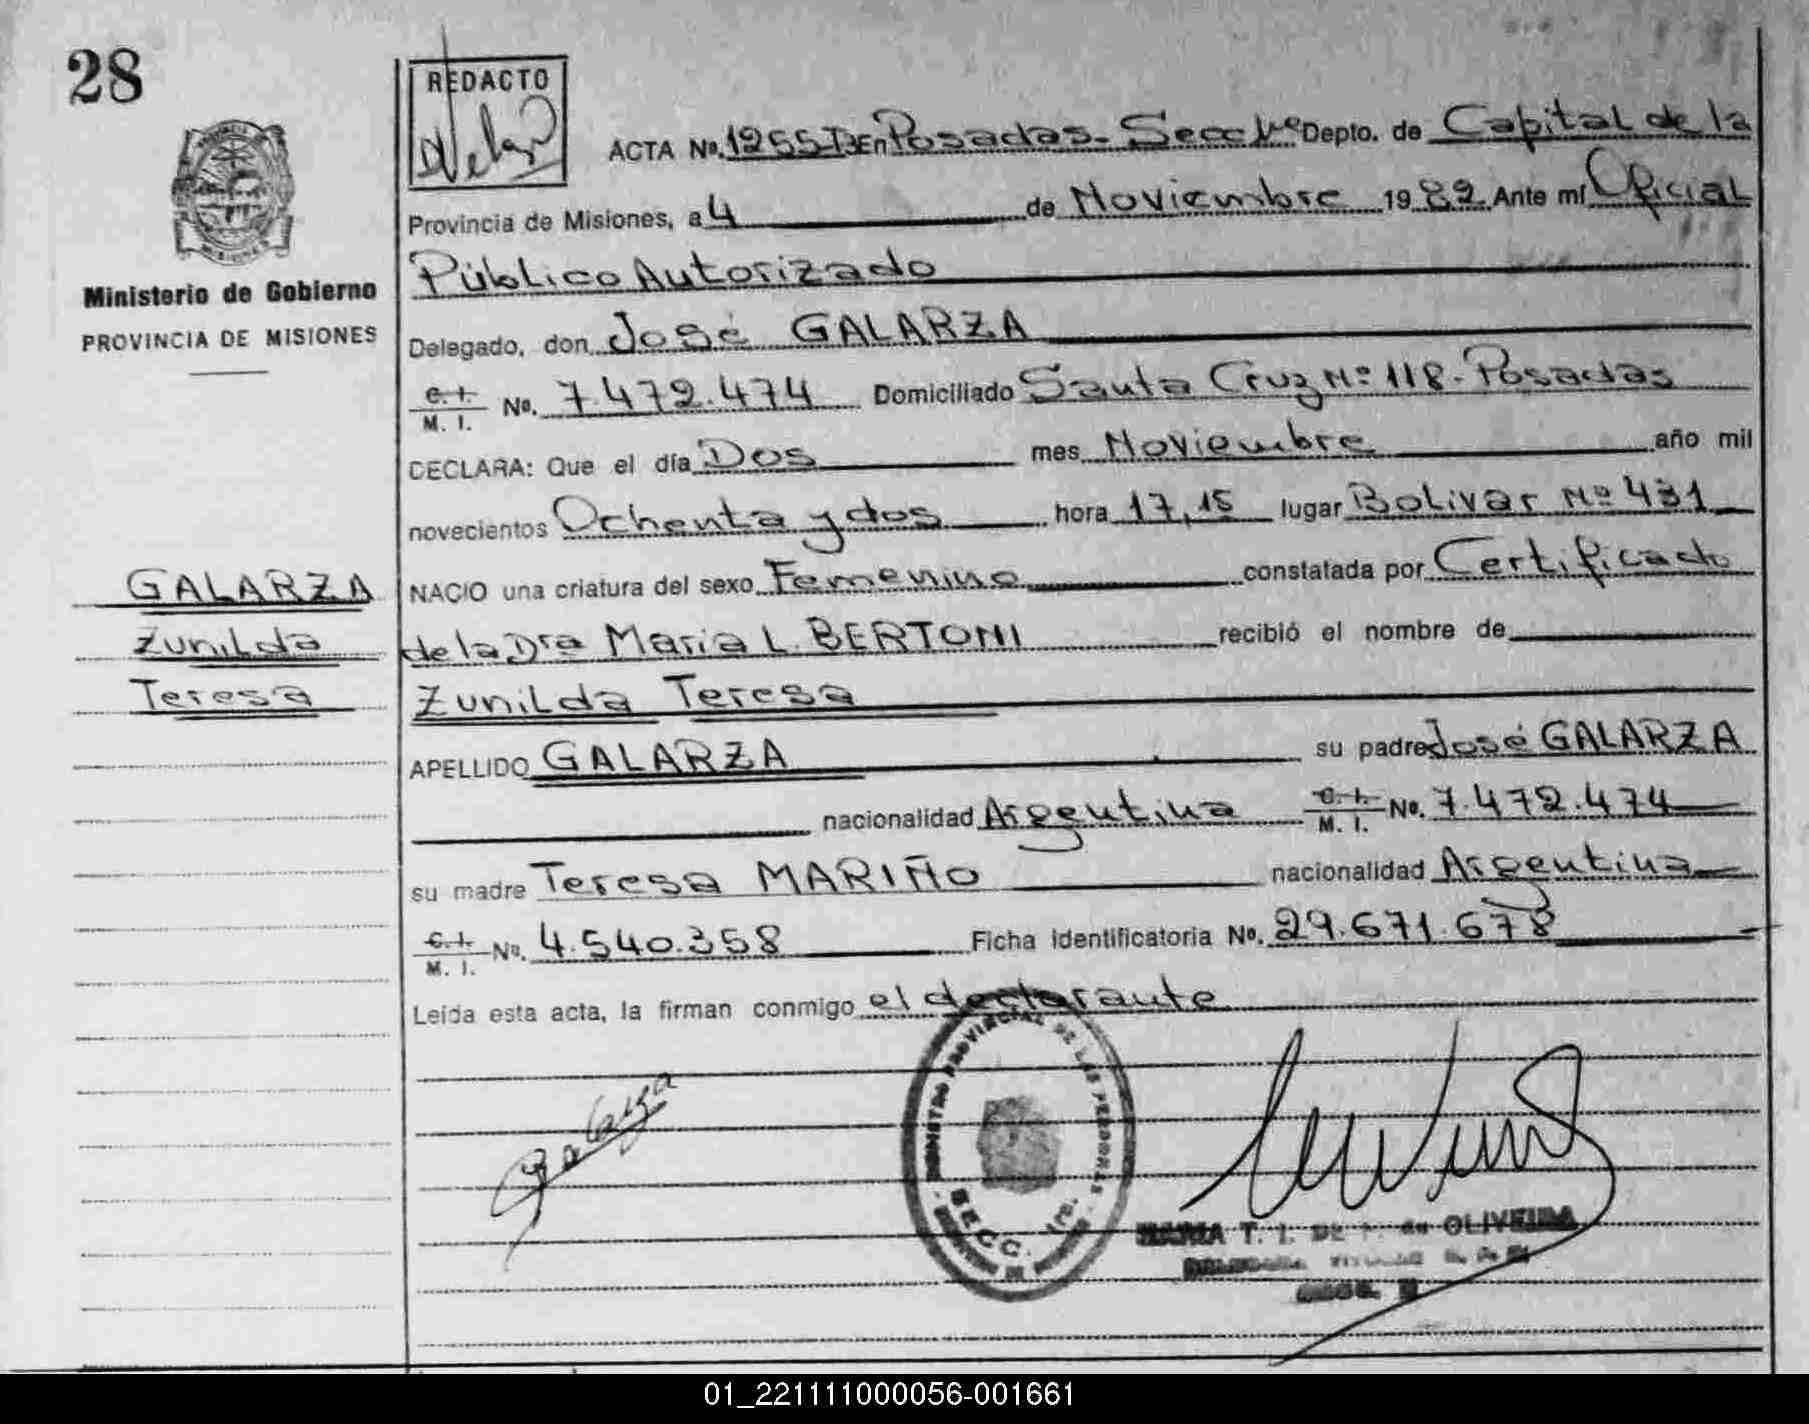 28
REDACTO
ACTA No. 1255-B En Posadas - Secc 1ra Depto. de Capital de la
Provincia de Misiones, a 4 de Noviembre 1982 Ante mí Oficial
Público Autorizado
Ministerio de Gobierno
PROVINCIA DE MISIONES
Delegado, don José GALARZA
C. I. M. I. No. 7.472.474 Domiciliado Santa Cruz Nº 118 - Posadas
DECLARA: Que el día Dos mes Noviembre año mil
novecientos Ochenta y dos hora 17,15 lugar Bolivar Nº 431
NACIO una criatura del sexo Femenino constatada por Certificado
de la Dra Maria L. BERTONI recibió el nombre de
Zunilda Teresa
GALARZA
Zunilda
Teresa
APELLIDO GALARZA su padre José GALARZA
nacionalidad Argentina C. I. M. I. No. 7.472.474
su madre Teresa MARIÑO nacionalidad Argentina
C. I. M. I. No. 4.540.358 Ficha Identificatoria No. 29.671.678
Leída esta acta, la firman conmigo el declarante
Galarza
PROVINCIAL DE LAS PERSONAS
SECC. 1ra.
MARIA T. I. DE OLIVEIRA
01_221111000056-001661